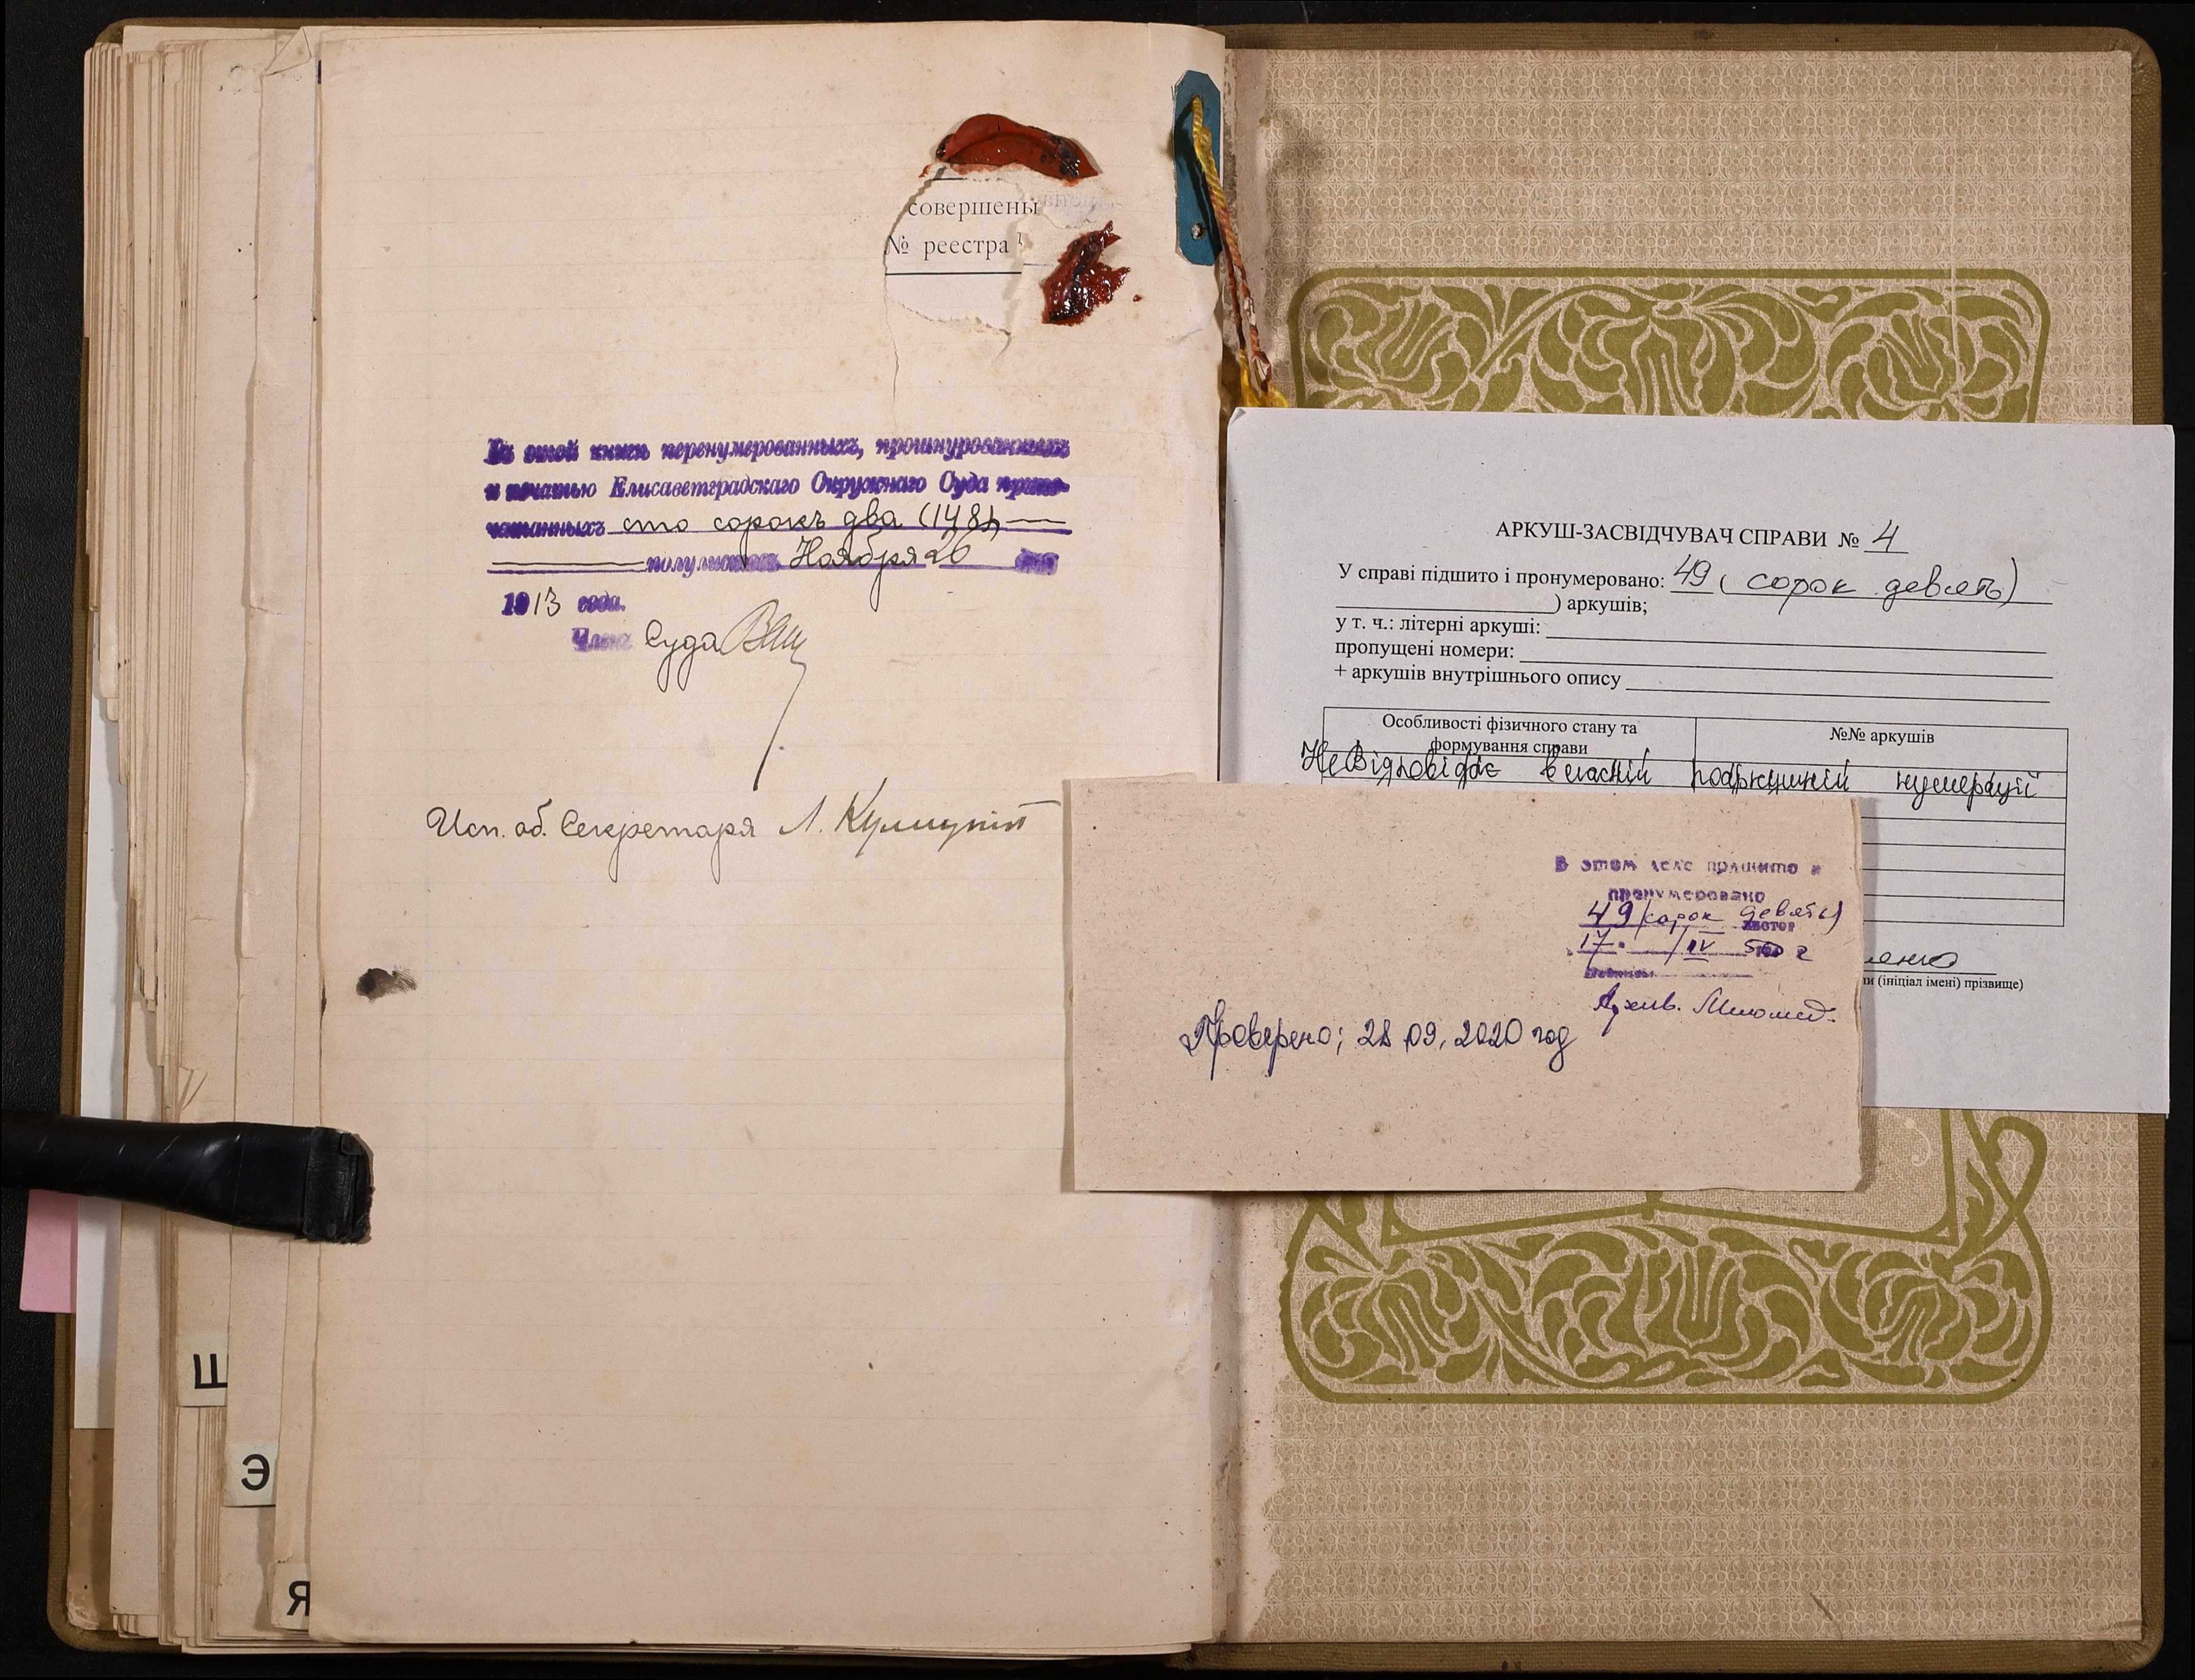 совершены
№ реестра
Въ этой книгѣ перенумерованныхъ, прошнурованныхъ
и печатью Елисаветградскаго Окружнаго Суда припе-
чатанныхъ сто сорокъ два (148)
полулистовъ Ноября 26 дня
1913 года.
Члена Суда
Исп. об. Секретаря Л.
Ш
Э
Я
АРКУШ-ЗАСВІДЧУВАЧ СПРАВИ № 4
У справі підшито і пронумеровано: 49 ( сорок девять)
) аркушів;
у т. ч.: літерні аркуші:
пропущені номери:
+ аркушів внутрішнього опису
Особливості фізичного стану та
формування справи
№№ аркушів
Не Відповідає власній нумерації
(ініціал імені) прізвище)
В этом деле подшито и
пронумеровано
49 (сорок девять)
листов
17 /IV г
Архив.
Проверено; 28.09.2020 год